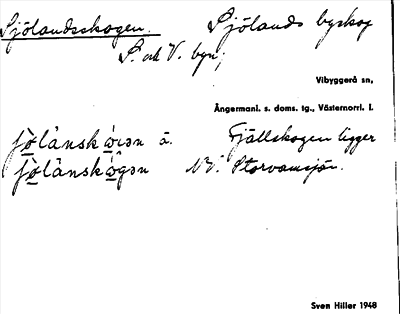 Sjölandsskogen. Sjölands byskog
S. och V. byn;
Vibyggerå sn,
Ångermanl. s. doms. tg., Västernorrl. l.
Fjällskogen ligger
NV. Storvamsjön.
Sven Hiller 1948